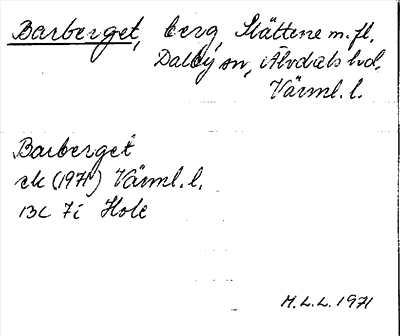 Barberget, berg, Slättene m.fl.
Dalby sn, Älvdals hd.
Värml. l.
Barberget
ek (1971) Värml. l.
13C 7i Hole
M.L.L. 1971